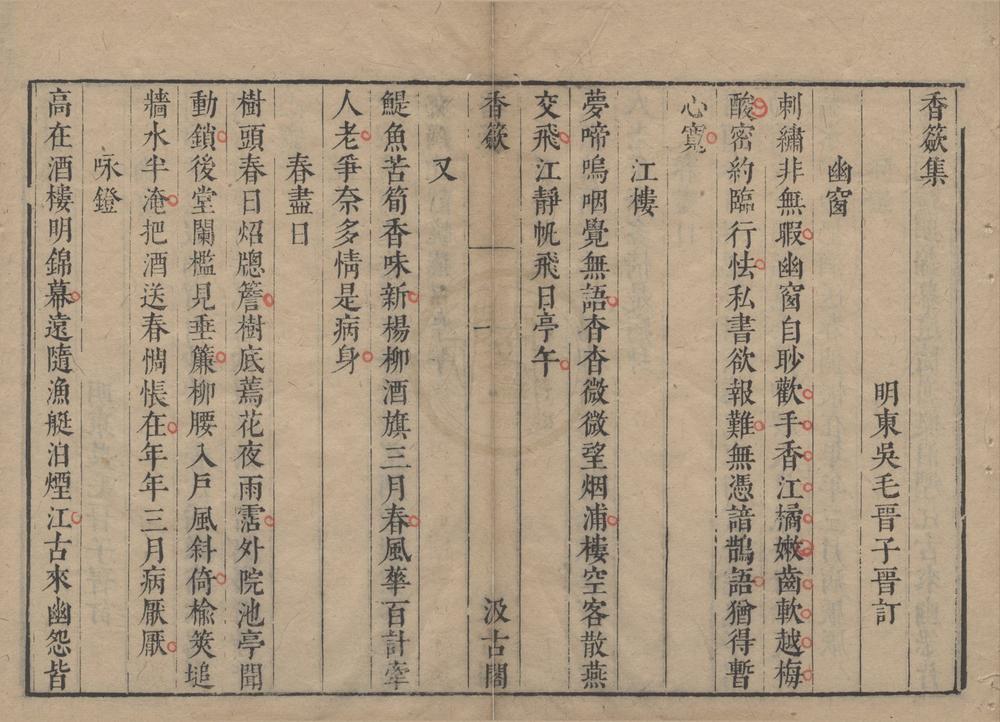 香奩集
明東吳毛晉子晉訂
幽窗
刺繡非無暇幽窗自眇歡手香江橘嫩齒軟越梅
酸密約臨行怯私書欲報難無憑諳鵲語猶得暫
心寬
江樓
夢啼嗚咽覺無語杳杳微微望烟浦樓空客散燕
交飛江靜帆飛日亭午
香奩
一
汲古閣
又
鯷魚苦筍香味新楊柳酒旗三月春風華百計牽
人老爭奈多情是病身
春盡日
樹頭春日炤牕簷樹底蔫花夜雨霑外院池亭聞
動鎖後堂闌檻見垂簾柳腰入戶風斜倚楡莢塠
牆水半淹把酒送春惆悵在年年三月病厭厭
咏鐙
高在酒樓明錦幕遠隨漁艇泊煙江古來幽怨皆